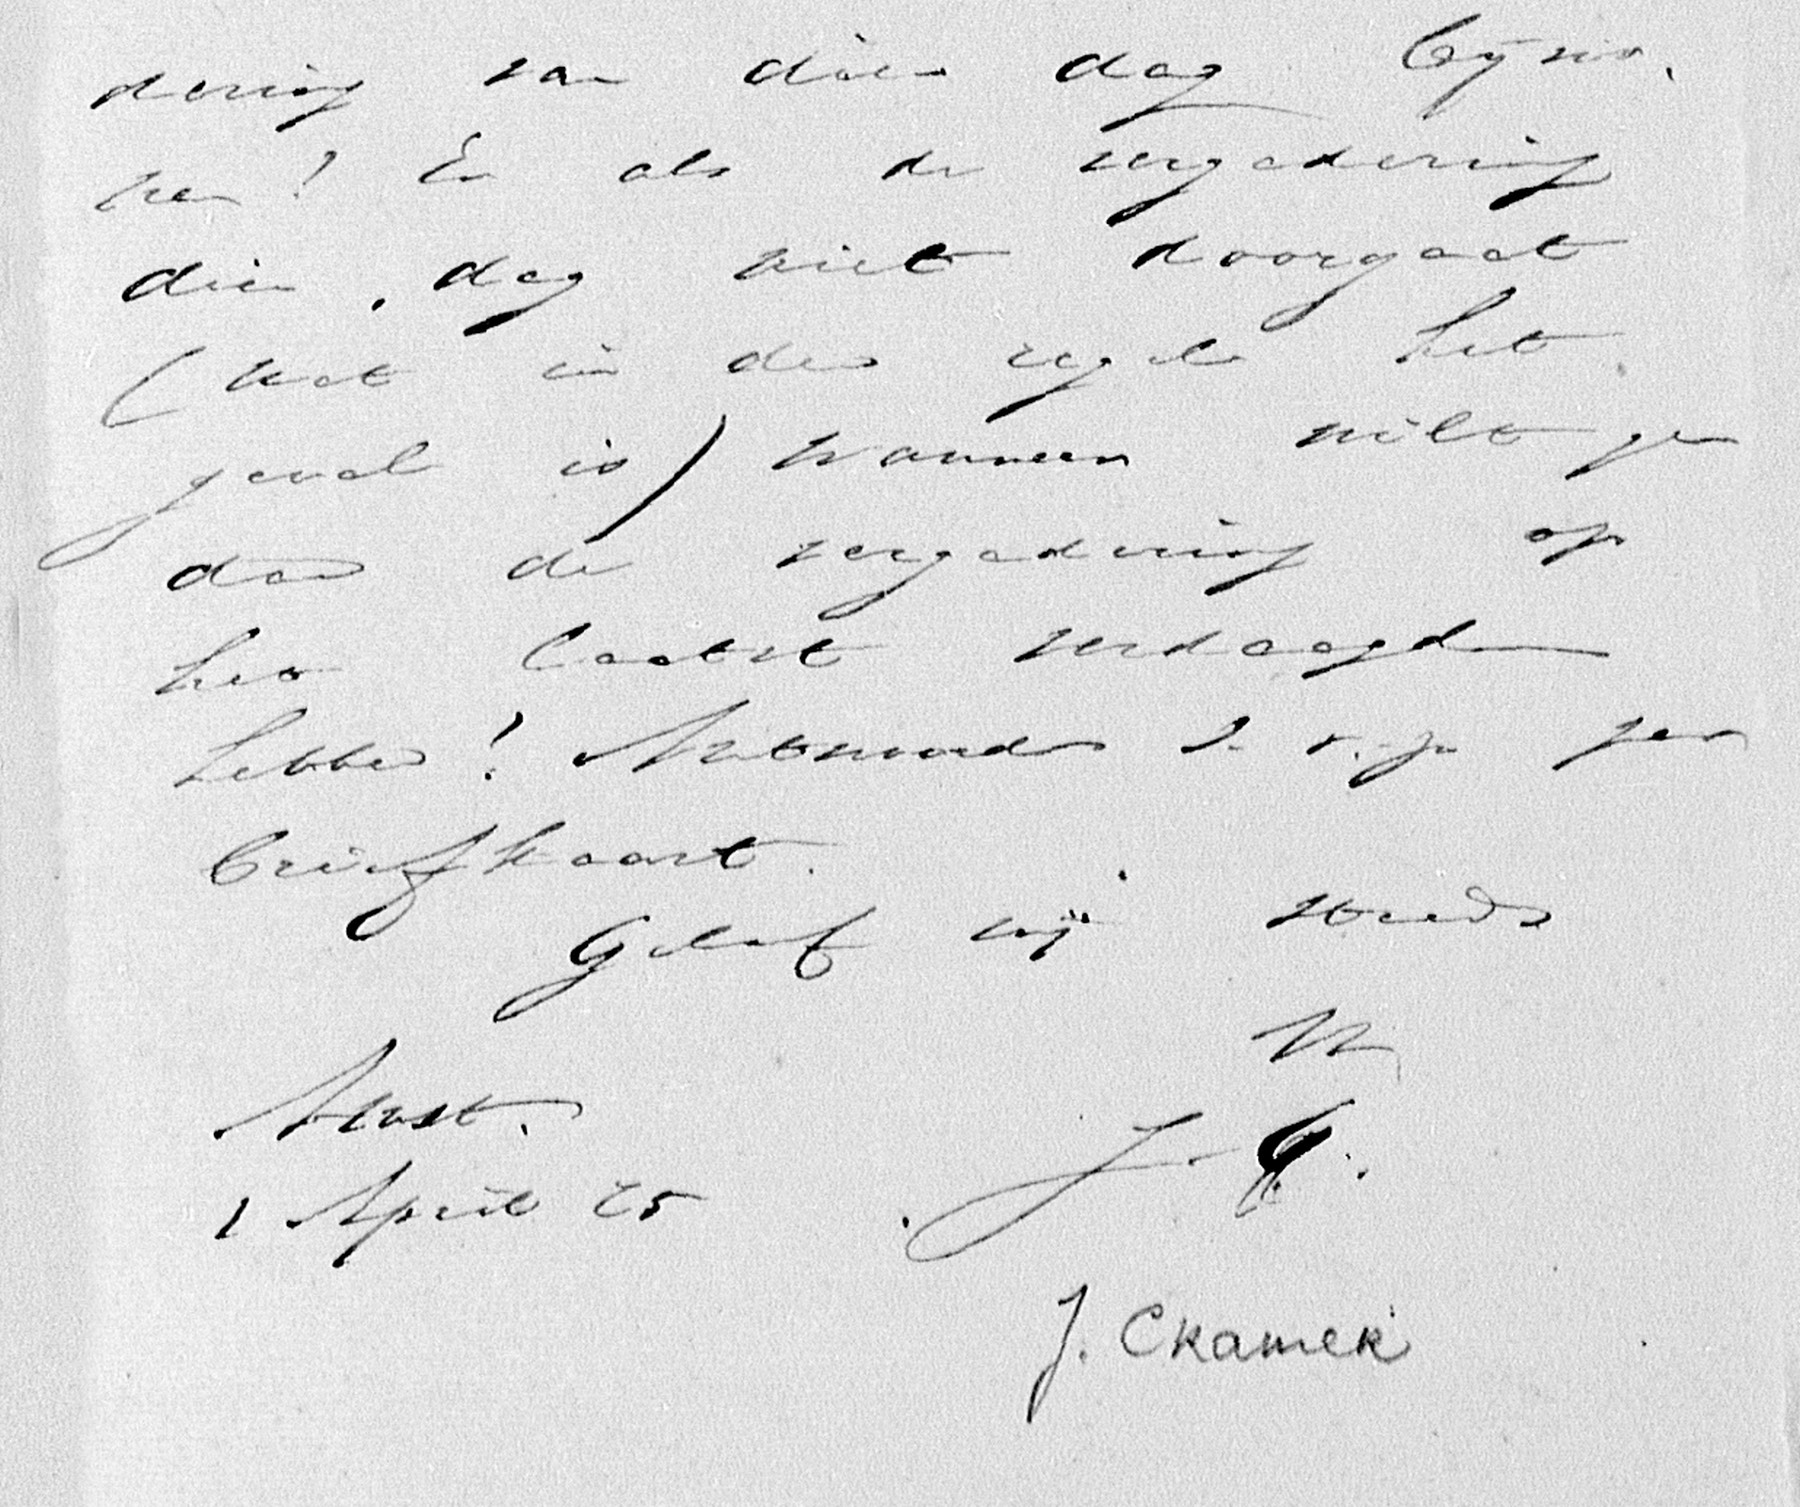 dering van dien dag bijwo-
nen! En als de vergadering
dien dag niet doorgaat
(wat in den regel het
geval is) wanneer wilt ge
dan de vergadering op
het laatst verdaagd
hebben! Antwoord s.v.p. per
briefkaart.
Geloof mij steeds
Uw
Amst.
1 April 25
J. C.
J. CRAMER